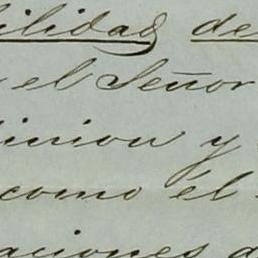 ilidad de
el Señor
inion y
como él
aciones d